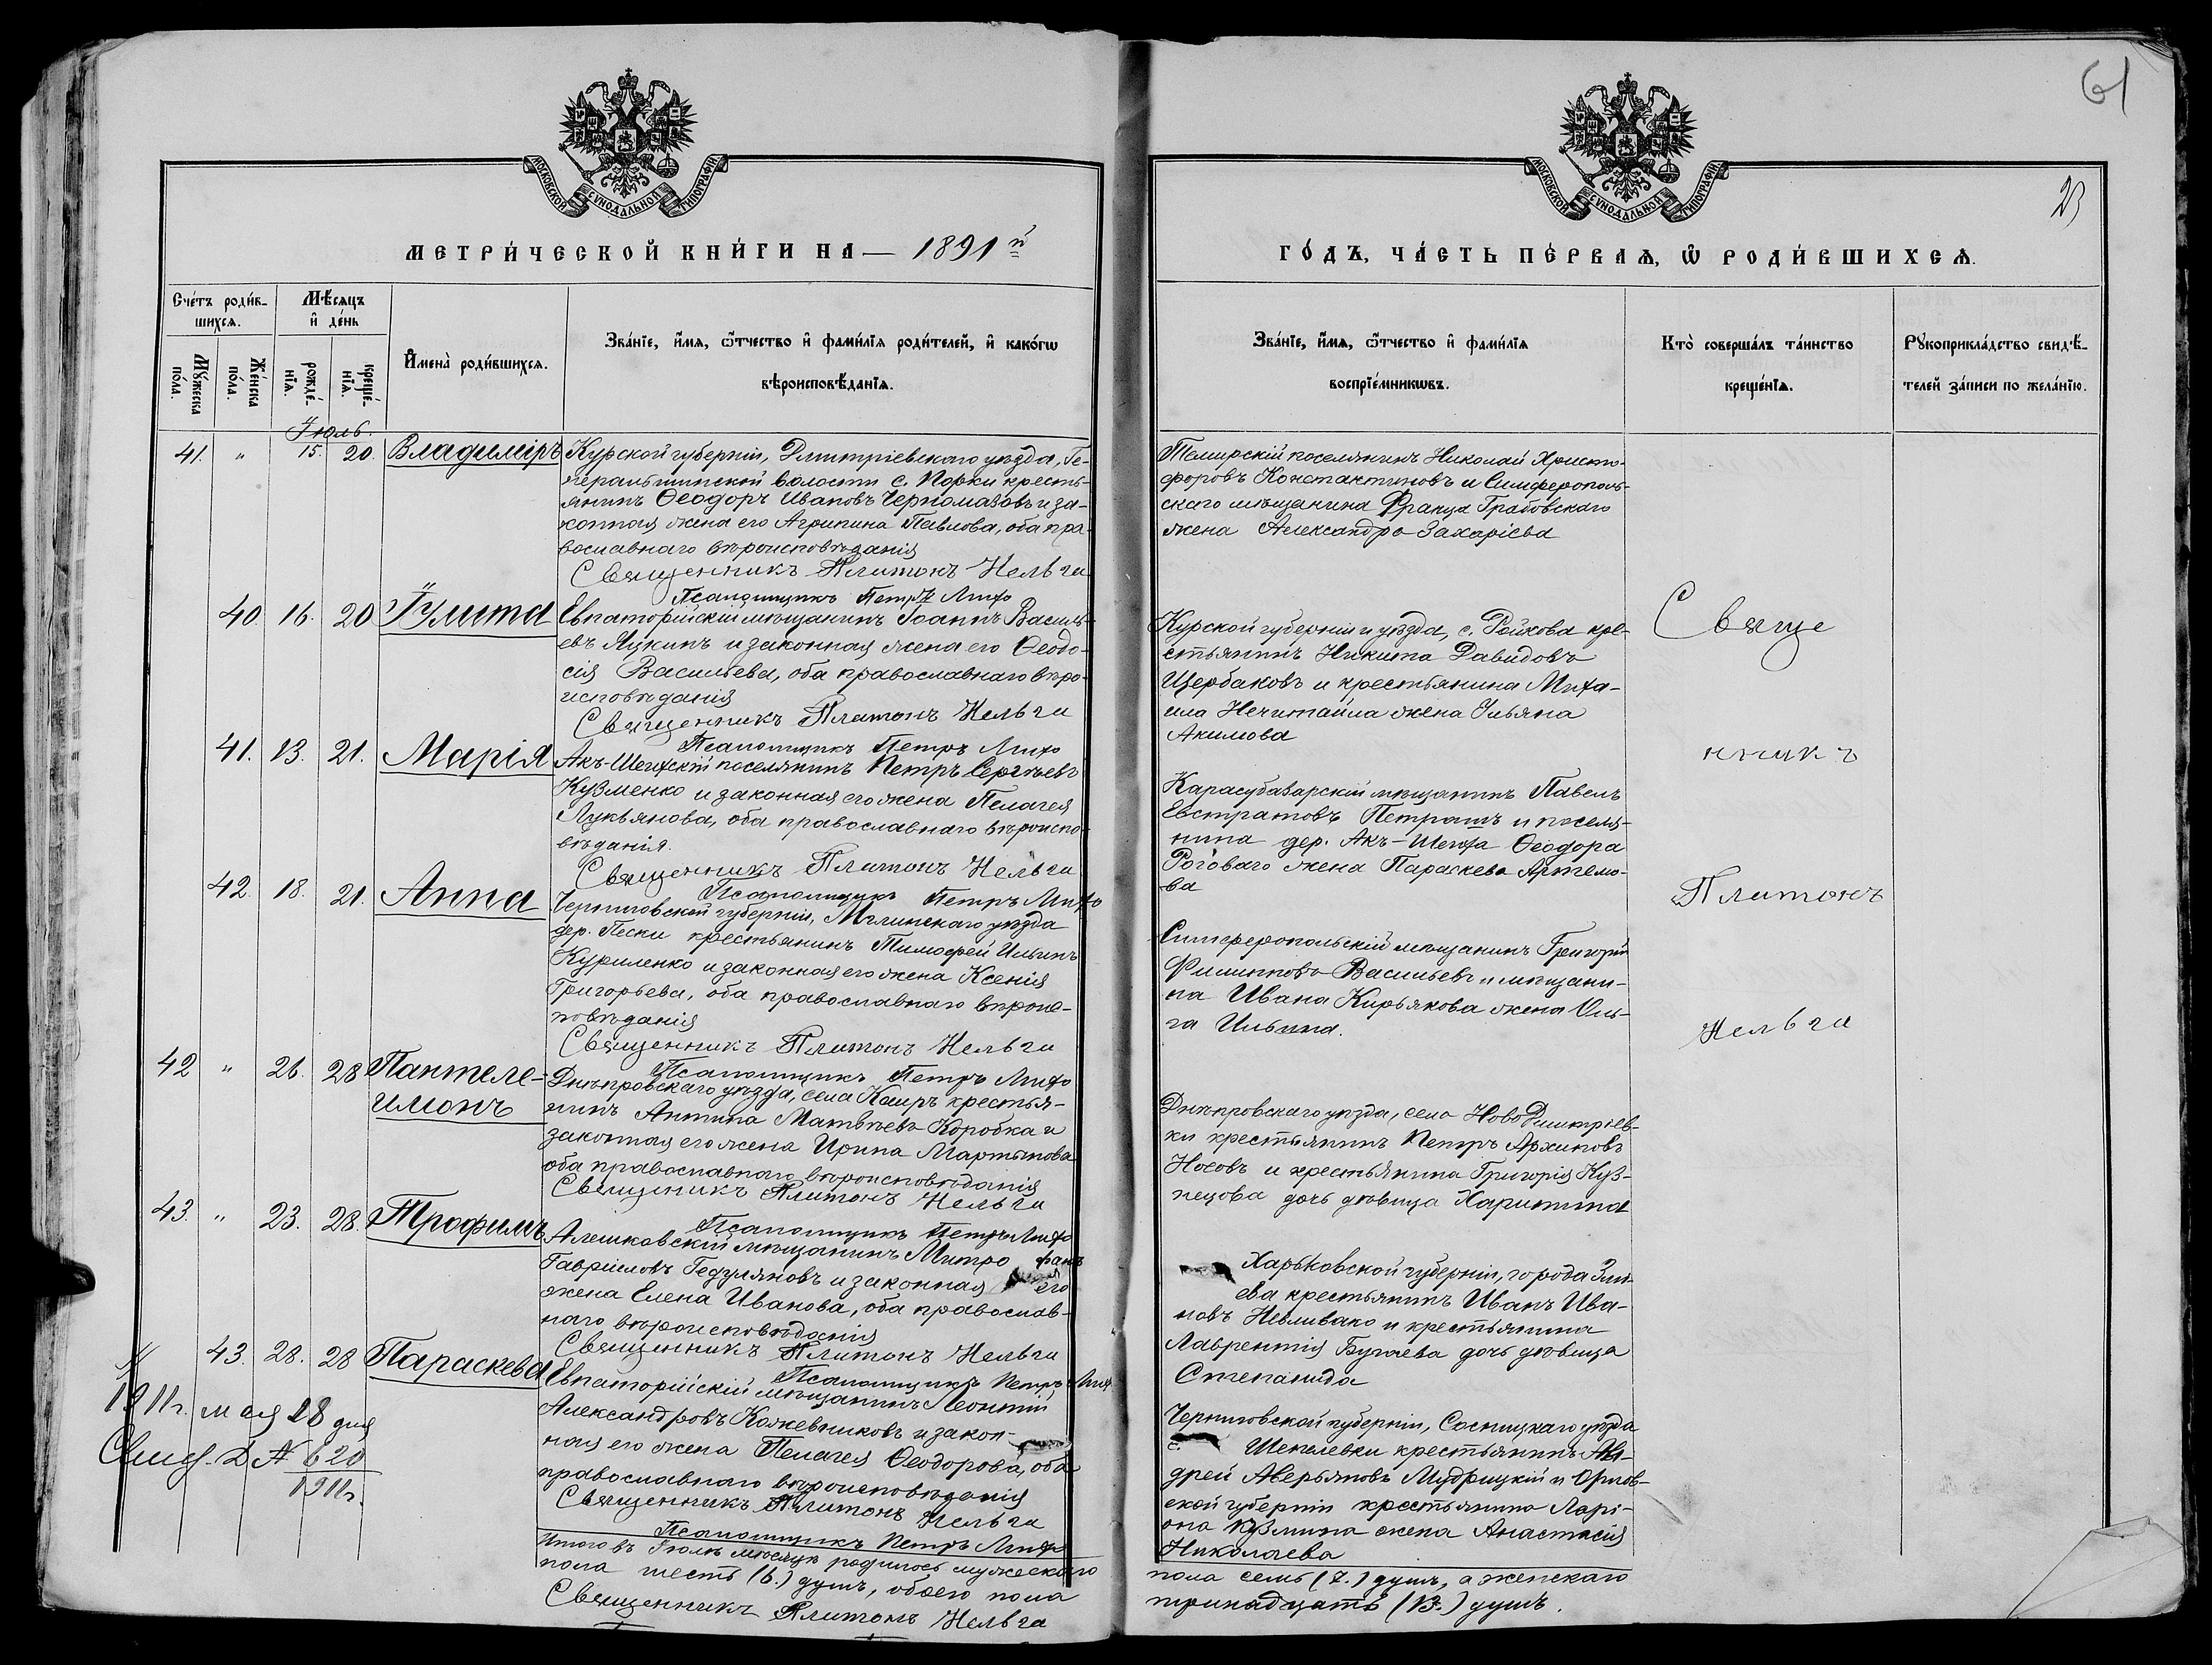 61
23
МОСКОВСКОЙ СѴНОДАЛЬНОЙ ТИПОГРАФІИ
МОСКОВСКОЙ СѴНОДАЛЬНОЙ ТИПОГРАФІИ
МЕТРИ́ЧЕСКОЙ КНИ́ГИ НА — 1891 й
ГО́ДЪ, ЧА́СТЬ ПЕ́РВАѦ, Ѿ РОДИ́ВШИХСѦ.
Сче́тъ роди́в-
шихсѧ.
Мѣ́сѧцъ
и҆ де́нь
Мꙋ́жеска
по́ла.
Же́нска
по́ла.
рожде́-
нїѧ.
креще́-
нїѧ.
И҆мена̀ роди́вшихсѧ.
Зва́нїе, и҆́мѧ, ѻ҆́тчество и҆ фами́лїѧ роди́телей, и҆ како́гѡ
вѣроисповѣ́данїѧ.
Зва́нїе, и҆́мѧ, ѻ҆́тчество и҆ фами́лїѧ
воспрїе́мникѡвъ.
Кто̀ соверша́лъ та́инство
креще́нїѧ.
Рꙋкоприкла́дство свидѣ́-
телей за́писи по жела́нїю.
Іюль.
41. " 15. 20. Владиміръ
Курской губерніи, Дмитріевскаго уѣзда, Ге-
неральшинской волости с. Порки кресть-
янинъ Ѳеодоръ Ивановъ Черномазовъ и за-
конная жена его Агрипина Павлова, оба пра-
вославнаго вѣроисповѣданія
Священникъ Платонъ Нельга
Псаломщикъ Петръ Лихо
Темирскій поселянинъ Николай Христо-
форовъ Константиновъ и Симферополь-
скаго мѣщанина Франца Грабовскаго
жена Александра Захаріева
40. 16. 20 Іулита
Евпаторійскій мѣщанинъ Іоаннъ Василь-
евъ Лукинъ и законная жена его Ѳеодо-
сія Васильева, оба православнаго вѣро-
исповѣданія
Священникъ Платонъ Нельга
Псаломщикъ Петръ Лихо
Курской губерніи и уѣзда, с. Ройкова кре-
стьянинъ Никита Давидовъ
Щербаковъ и крестьянина Миха-
ила Нечитайла жена Ульяна
Акимова
41. 13. 21. Марія
Акъ-Шеихскій поселянинъ Петръ Сергѣевъ
Кузменко и законная его жена Пелагея
Лукьянова, оба православнаго вѣроиспо-
вѣданія.
Священникъ Платонъ Нельга
Псаломщикъ Петръ Лихо
Карасубазарскій мѣщанинъ Павелъ
Евстратовъ Петрашъ и поселя-
нина дер. Акъ-Шеиха Ѳеодора
Роговаго жена Параскева Артемо-
ва
42. 18. 21. Анна
Черниговской губерніи, Мглинскаго уѣзда
дер. Пески крестьянинъ Тимофей Ильинъ
Куриленко и законная его жена Ксенія
Григорьева, оба православнаго вѣроис-
повѣданія
Священникъ Платонъ Нельга
Псаломщикъ Петръ Лихо
Симферопольскій мѣщанинъ Григорій
Филипповъ Васильевъ и мѣщани-
на Ивана Кирьякова жена Оль-
га Ильина.
42 " 26. 28 Пантеле-
имонъ
Днѣпровскаго уѣзда, села Каиръ крестья-
нинъ Антипа Матвѣевъ Коробка и
законная его жена Ирина Мартынова
оба православнаго вѣроисповѣданія
Священникъ Платонъ Нельга
Псаломщикъ Петръ Лихо
Днѣпровскаго уѣзда, села НовоДмитріев-
ки крестьянинъ Петръ Архиповъ
Носовъ и крестьянина Григорія Куз-
нецова дочь дѣвица Харитина
43. " 23. 28. Трофимъ
Алешковскій мѣщанинъ Митрофанъ
Гавріиловъ Гедуляновъ и законная его
жена Елена Иванова, оба православ-
наго вѣроисповѣданія
Священникъ Платонъ Нельга
Псаломщикъ Петръ Лихо
Харьковской губерніи, города Змі-
ева крестьянинъ Иванъ Ива-
новъ Невливако и крестьянина
Лаврентія Бугаева дочь дѣвица
Степанида
43. 28. 28 Параскева
Евпаторійскій мѣщанинъ Леонтій
Александровъ Кожевниковъ и закон-
ная его жена Пелагея Ѳеодорова, оба
православнаго вѣроисповѣданія
Священникъ Платонъ Нельга
Псаломщикъ Петръ Лихо
Черниговской губерніи, Сосницкаго уѣзда
с. Шепелевки крестьянинъ Ан-
дрей Аверьяновъ Мудрицкій и Орлов-
ской губерніи крестьянина Ларі-
она Кузмина жена Анастасія
Николаева
1911г. мая 28 дня
Свид. Д № 620
1911г.
Священникъ
Платонъ
Нельга
Итого въ Іюлѣ мѣсяцѣ родилось мужескаго
пола шесть (6.) душъ, обоего пола
Священникъ Платонъ Нельга
пола семь (7.) душъ, а женскаго
тринадцать (13.) душъ.